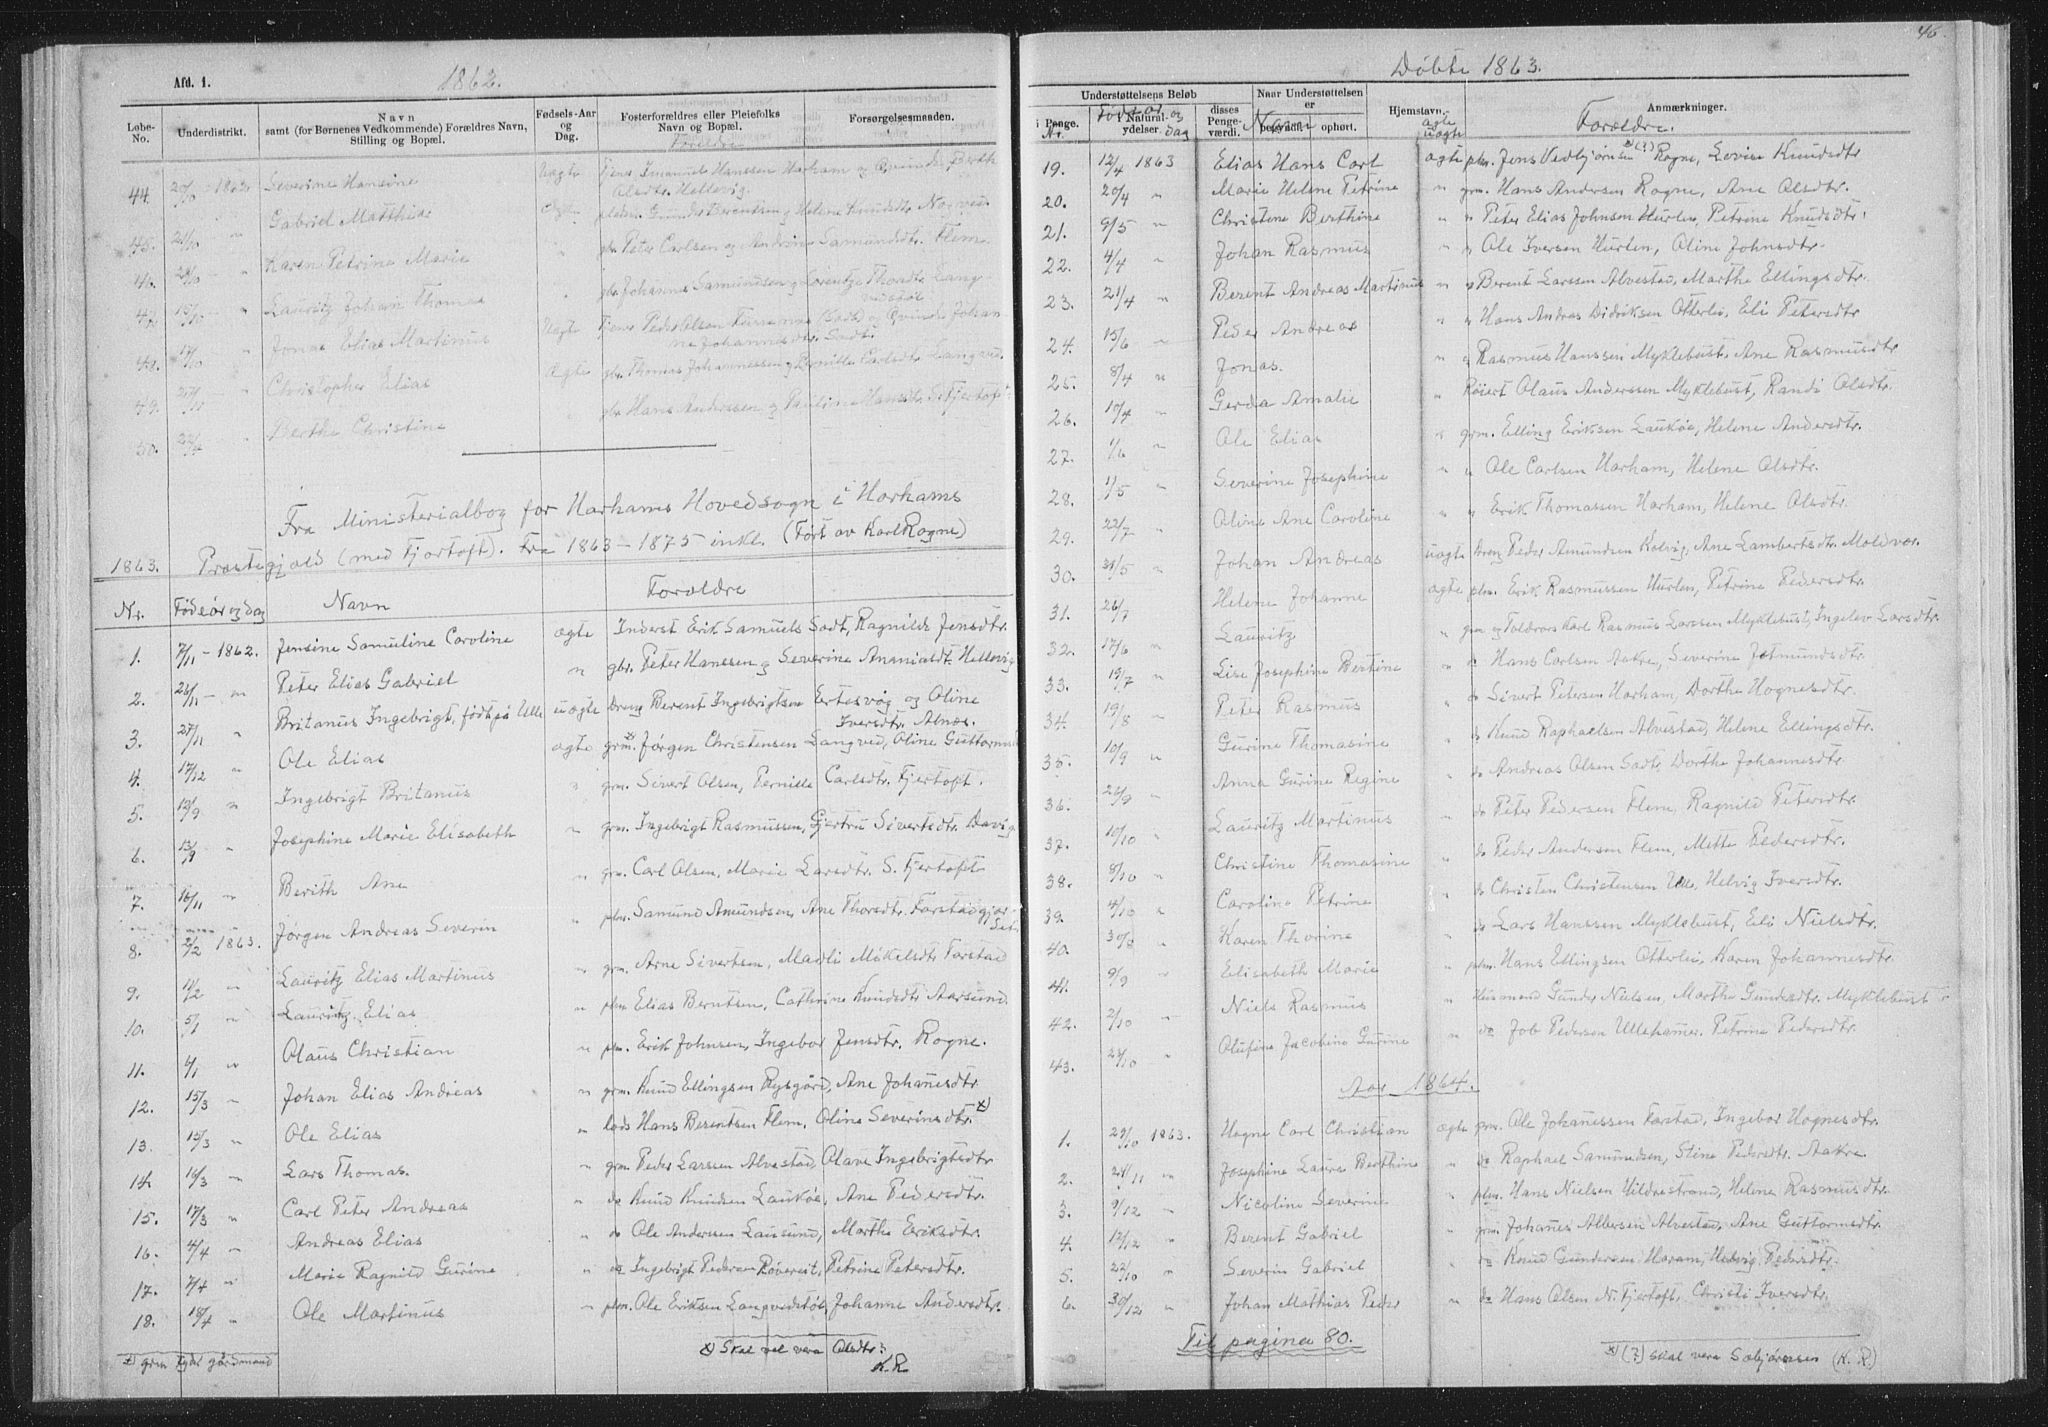 Afd. 1.
1862.
Løbe-No.
Underdistrikt.
Navn samt (for Børnenes Vedkommende) Forældres Navn, Stilling og Bopæl.
Fødsels-Aar og Dag.
Fosterforældres eller Pleiefolks Navn og Bopæl.
Forældre
Forsørgelsesmaaden.
44. 20/10 - 1862 Severine Hansine Uægte Tjener Imanuel Hanssen Harham og Qvinde Berth Olsdtr. Hellevig.
45. 21/10 " Gabriel Matthias Ægte pladsm. Gunder Berentsen og Helene Knudsdtr. Norvin
46. 28/10 " Karen Petrine Marie " gbr. Peter Carlsen og Andrine Samundsdtr. Flem
47. 15/10 " Lauritz Johan Thomas " gbr. Johannes Samundsen og Lorentze Thorsdtr. Lang-vedstøl
48. 17/10 " Jonas Elias Martinus Uægte Tjener Peder Olsen (Sadt) og Qvinde Johan-ne Johannesdtr. Sadt.
49. 27/11 " Christopher Elias Ægte gbr. Thomas Johannessen og Pernille Carlsdtr. Langved.
50. 22/4 " Berthe Christine " gbr. Hans Anderssen og Pauline Hansdtr. S. Fjertoft
Fra Ministerialbog for Harhams Hovedsogn i Harhams
1863. Præstegjeld (med Fjertoft). Fra 1863-1875 inkl. (Ført av Karl Rogne)
Nr. Fødeår og dag Navn Forældre
1. 7/11 - 1862. Jensine Samuline Caroline ægte Inderst Erik Samuels Sadt, Ragnilde Jensdtr.
2. 26/11 - " Peter Elias Gabriel " gbr. Peter Hanssen og Severine Ananiasdt. Hellevig
3. 27/11 " Britanus Ingebrigt, født på Ulle uægte Dreng Berent Ingebrigtsen Ertesvåg og Oline Iversdtr. Alnæs.
4. 17/12 " Ole Elias ægte grm. x) Jørgen Christensen Langved, Oline Guttorms
5. 12/9 " Ingebrigt Britanus " grm. Sivert Olsen, Pernille Carlsdtr. Fjertoft.
6. 13/9 " Josephine Marie Elisabeth " grm. Ingebrigt Rasmussen, Gjertru Sivertsdtr. Davig
7. 16/11 " Berith Ane " grm. Carl Olsen, Marie Larsdtr. S. Fjertoft
8. 2/2 1863. Jørgen Andreas Severin " plm. Samund Amundsen, Ane Thorsdtr. Farstadgjær-det.
9. 10/2 " Lauritz Elias Martinus " grm. Arne Sivertsen, Madli Mikelsdtr. Farstad
10. 5/1 " Lauritz Elias " plm Elias Berntsen, Cathrine Knudsdtr. Aarsund.
11. 4/1 " Olaus Christian " plm. Erik Johnsen, Ingebor Jensdtr. Rogne.
12. 15/3 " Johan Elias Andreas " grm. Knud Ellingsen Rysgård, Ane Johanesdtr.
13. 15/3 " Ole Elias " lods Hans Berentsen Flem, Oline Severinsdtr. x)
14. 16/3 " Lars Thomas. " grm Peder Larssen Alvestad, Olave Ingebrigtsdtr
15. 17/3 " Carl Peter Andreas " do Knud Knudsen Laukøe, Ane Pedersdtr.
16. 4/4 " Andreas Elias " do Ole Anderssen Lausund, Marthe Eriksdtr.
17. 7/4 " Marie Ragnild Gurine " do Ingebrigt Pedersen Røvereit, Petrine Petersdtr.
18. 18/4 " Ole Martinus " plm. Ole Eriksen Langvedstøl, Johanne Andersdtr.
x) grm tyder gårdmand
x) Skal vel vera Olsdtr. K.R.
46.
Døbte 1863.
Understøttelsens Beløb
i Penge.
Nr.
i Naturalydelser.
Føde år og Dag
disses Pengeværdi.
Naar Understøttelsen er
begyndt.
ophørt.
Navn
Hjemstavn.
ægte uægte
Anmærkninger.
Forældre.
19. 12/4 1863 Elias Hans Carl ægte plm. Jens Vedbjørnsen x)(?) Rogne, Lovise Knudsdtr
20. 20/4 " Marie Helene Petrine " grm. Hans Andersen Rogne, Ane Olsdtr.
21. 9/5 " Christine Berthine " " Peter Elias Johnsen Hurlen, Petrine Knudsdtr.
22. 4/4 " Johan Rasmus " " Ole Iversen Hurlen, Oline Johnsdtr.
23. 21/4 " Berent Andreas Martinus " " Berent Larssen Alvestad, Marthe Ellingsdtr.
24. 15/6 " Peder Andreas " " Hans Andras Didriksen Otterlei, Eli Petersdtr
25. 8/4 " Jonas. " " Rasmus Hanssen Myklebust, Ane Rasmusdtr
26. 10/4 " Gerda Amalie " Røiert Olaus Anderssen Myklebust, Randi Olsdtr.
27. 1/6 " Ole Elias " grm. Elling Eriksen Laukøe, Helene Andersdtr.
28. 11/5 " Severine Josephine " " Ole Carlsen Harham, Helene Olsdtr.
29. 22/7 " Oline Ane Caroline " " Erik Thomassen Harham, Helene Olsdtr.
30. 31/5 " Johan Andreas uægte Dreng Peder Amundsen Kolvig, Ane Lambertsdtr. Moldvær.
31. 26/7 Helene Johanne ægte plm. Erik Rasmussen Hurlen, Petrine Pedersdtr.
32. 17/6 " Lauritz " grm og Toldroer Karl Rasmus Larssen Myklebust, Ingelev Larsdtr.
33. 19/7 " Lise Josephine Bertine " do Hans Carlsen Aakre, Severine Jetmundsdtr.
34. 19/8 " Peter Rasmus " do Sivert Petersen Harham, Dorthe Hognesdtr.
35. 10/9 " Gurine Thomasine " do Knud Raphaelsen Alvestad, Helene Ellingsdtr.
36. 26/9 " Anna Gurine Regine " do Andreas Olsen Sadt, Dorthe Johannesdtr.
37. 10/10 " Lauritz Martinus " do Peter Pedersen Flem, Ragnild Petersdtr.
38. 8/10 " Christine Thomasine " do Peder Andersen Flem, Mette Pedersdtr.
39. 4/10 " Caroline Petrine " do Christen Christensen Ulle, Helvig Iversdtr.
40. 30/8 " Karen Thorine " do Lars Hanssen Myklebust, Eli Nielsdtr.
41. 9/9 " Elisabeth Marie " plm. Hans Ellingsen Otterlei, Karen Johannesdtr.
42. 2/10 " Niels Rasmus " Husmand Gunder Nielsen, Marthe Gundersdtr. Myklebust
43. 23/10 " Olufine Jacobine Gurine " do Job Pedersen Ullehamer, Petrine Pedersdtr.
Aar 1864.
1. 29/10 1863. Hogne Carl Christian ægte grm. Ole Johanessen Farstad, Ingebor Hognesdtr.
2. 24/11 " Josephine Laura Berthine " do Raphael Samundsen, Stine Pedersdtr. Aakre
3. 9/12 " Nicoline Severine " plm. Hans Nielsen Hildrestrand, Helene Rasmusdtr.
4. 12/12 " Berent Gabriel " grm. Johanes Albersen Alvestad, Ane Guttormsdtr.
5. 22/10 " Severin Gabriel " do Knud Gundersen Haram, Helvig Pedersdtr.
6. 30/12 " Johan Mathias Peder " do Hans Olsen N. Fjertoft, Christi Iversdtr.
Til pagina 80.
x) (?) skal vera Sæbjørnsen (K.R.)